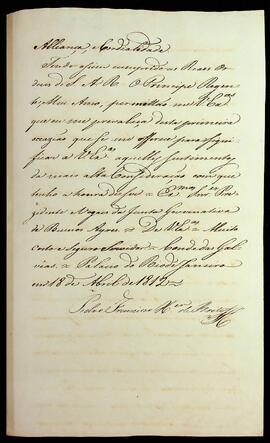 Alliança, e Cordialidade
Tendo assim cumprido as Reaes Or
dens de S. A. R. O Principe Regen
te, Meu Amo, permitta me V. Exas
que eu me prevaleça desta primeira
occazião que se me offerece para signi
ficar a V. Exas aquelles sentimentos
da mais alta Consideração com que
tenho a honra de ser = Exmos Snres Pre
zidente e Vogaes da Junta Governativa
de Buenos Ayres = De V. Exas = Muito
Certo e Seguro Servidor = Conde das Gal
veas = Palacio do Rio de Janeiro
em 18 de Abril de 1812 =
Francisco